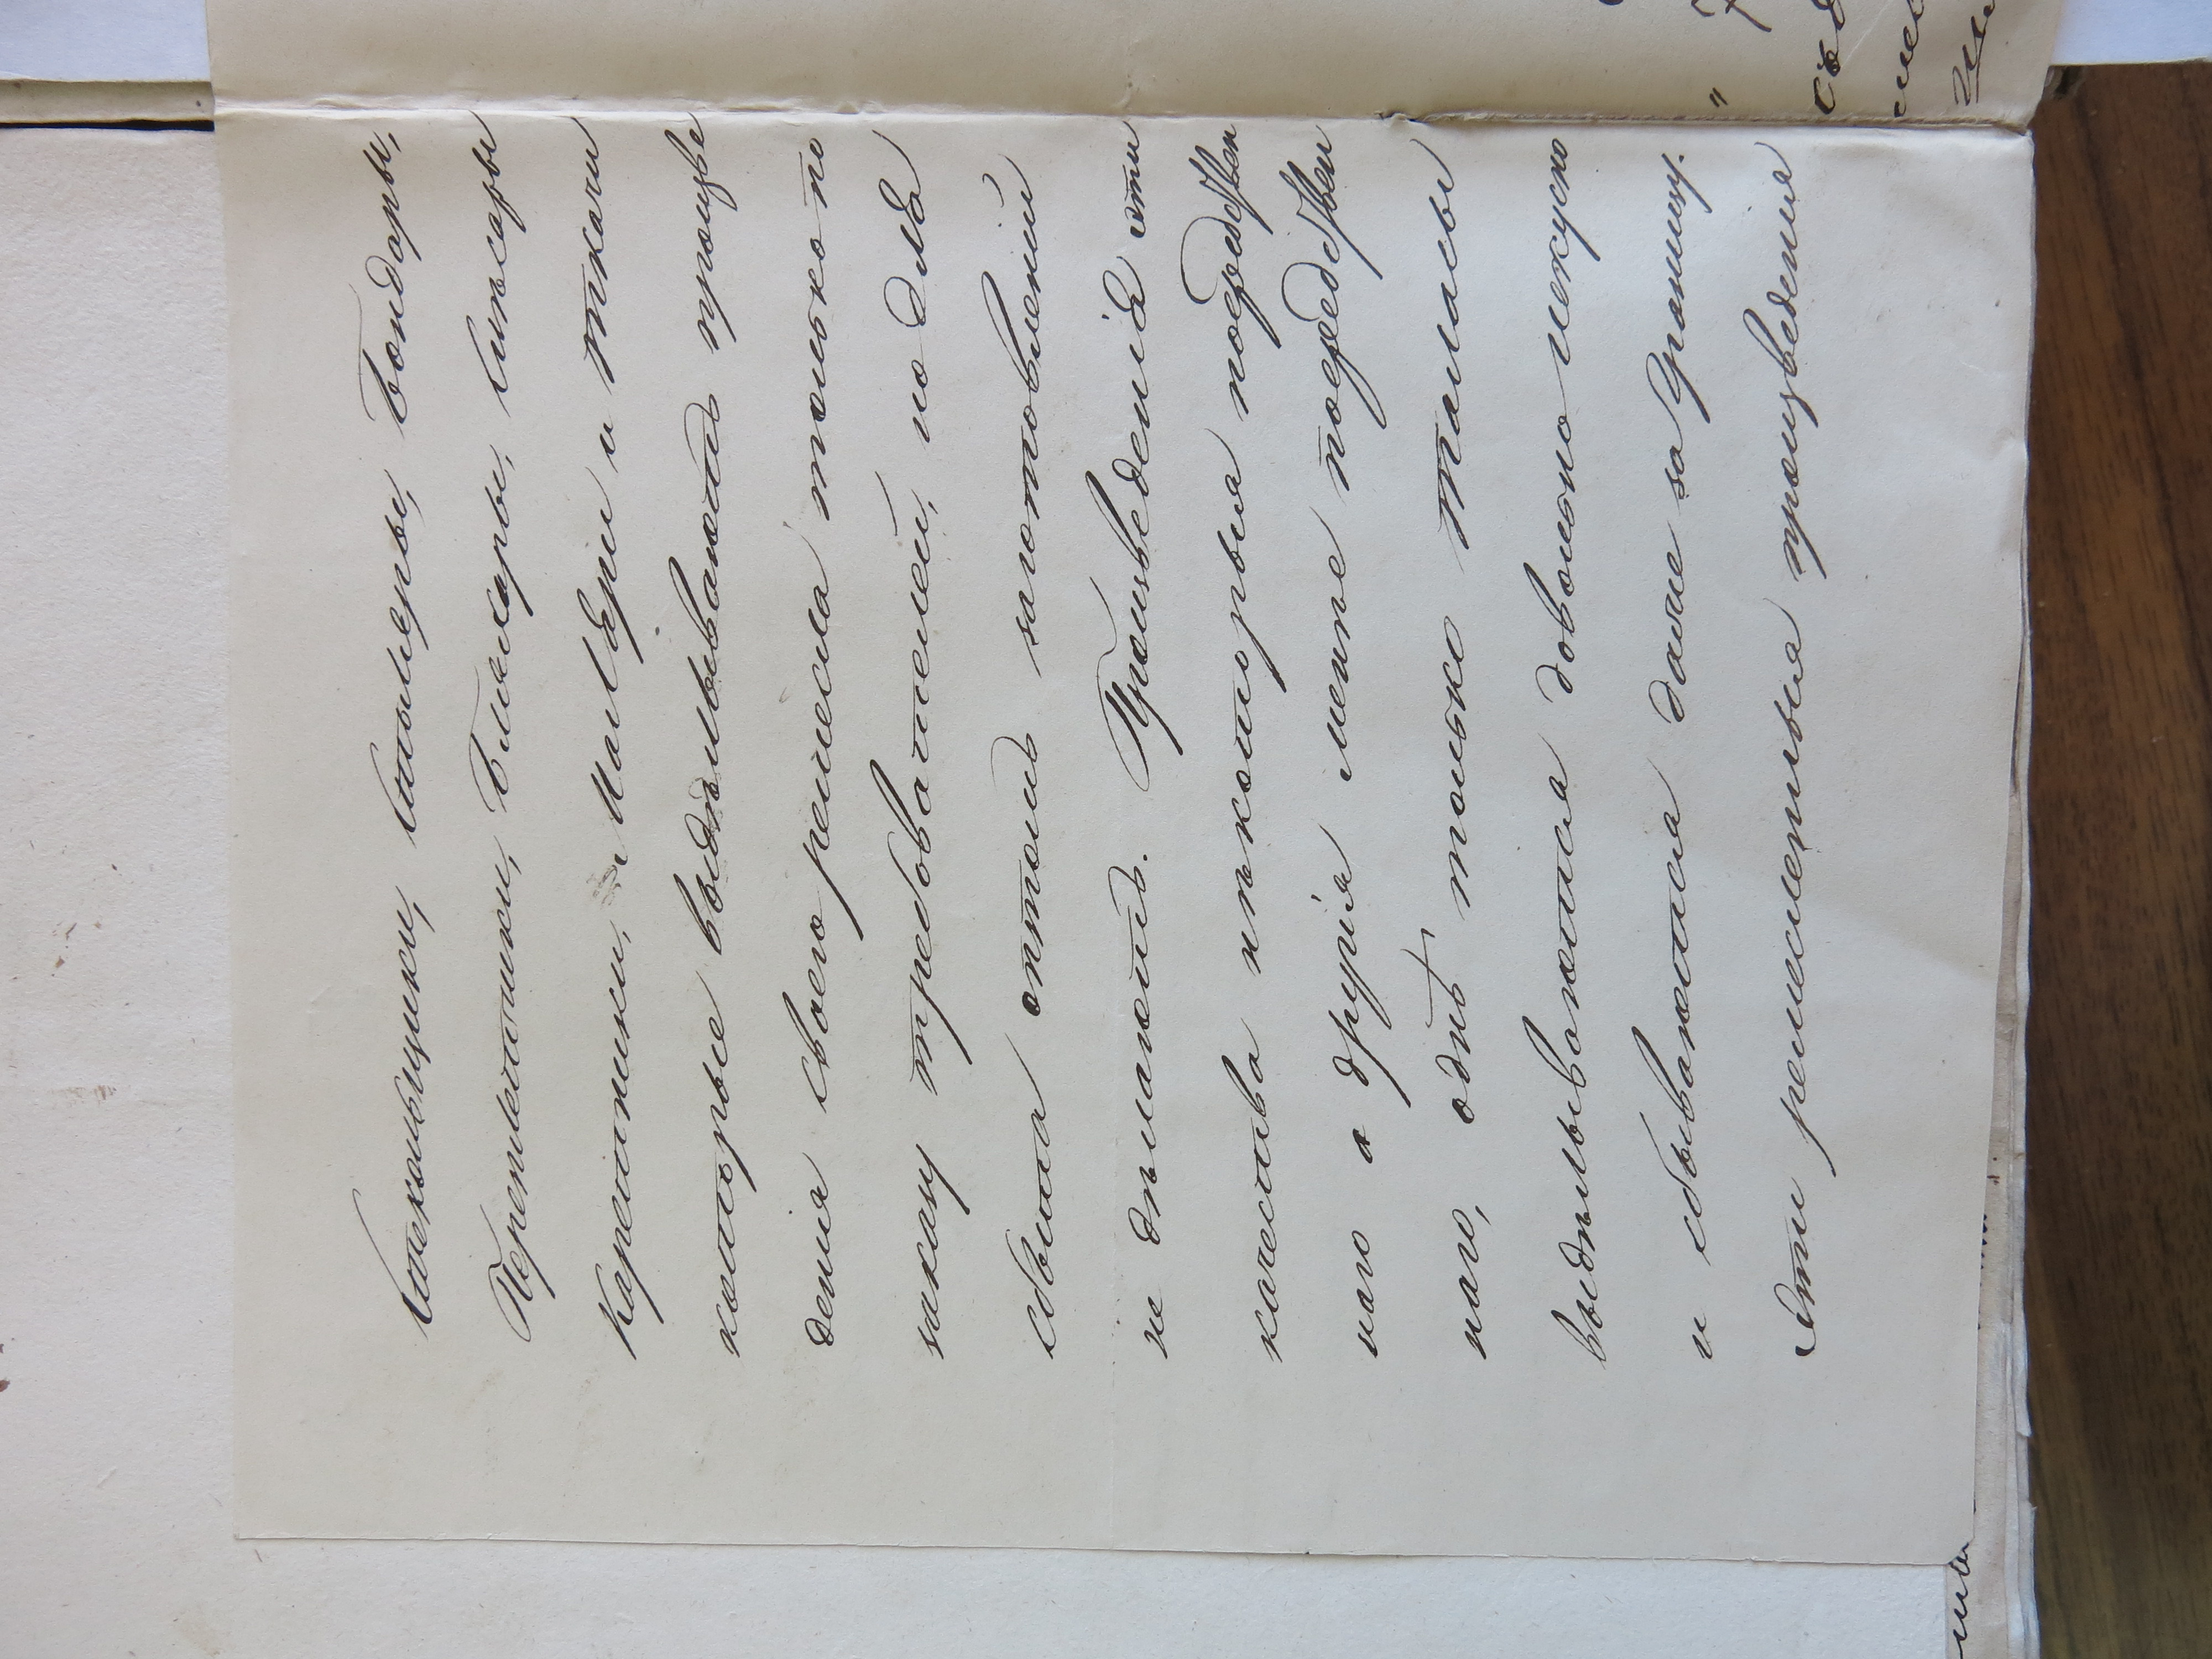 Стекольщики, Столеры, Бондары,
Переплетчики, Бляхары, Слѣсары
Каретники, Маляри и Ткачи
которые выдѣлываютъ произве
дения своего ремесла только по
заказу требователей, но для
сбыта оптомъ заготовлений
не дѣлаютъ. Произведенія эти
качества нѣкоторыя посредствен
наго а другія менѣе посредствен
наго, однѣ только Талысы
выдѣлываются довольно искусно
и сбываются даже за Границу.
Эти ремеслентыя произведения